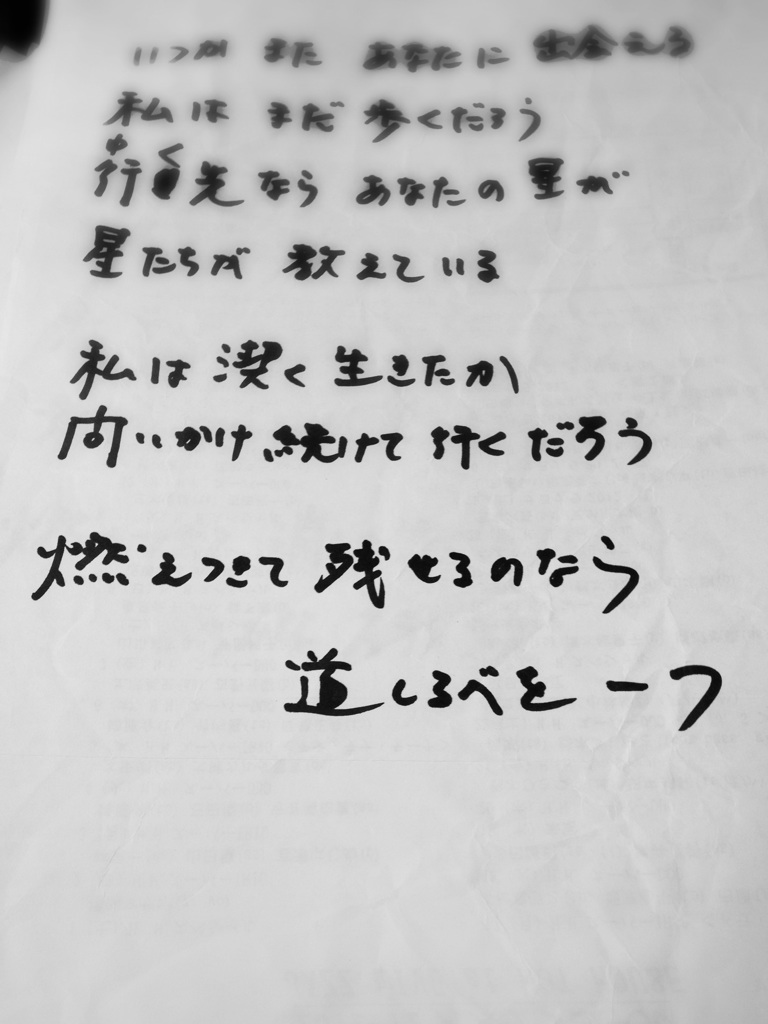 いつか また あなたに 出会える
私は まだ 歩くだろう
ゆ く
行 先 なら あなたの 星が
星たちが 教えている
私は 潔く 生きたか
問いかけ 続けて 行くだろう
燃えつきて 残せるのなら
道しるべを 一つ